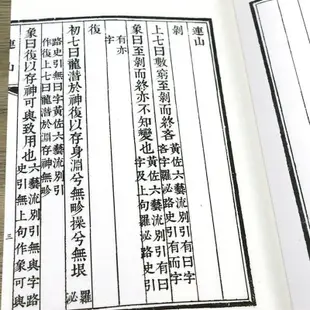 連山
剝
上七曰數窮致剝而終吝
象曰至剝而終亦不知變也
黃佐六藝流別引有曰
字及上句羅泌路史引
有亦
字
復
初七曰龍潛於神復以存身淵兮無畛操兮無垠
羅
泌
路史引無曰字黃佐六藝流別引
作復上七曰龍潛於淵存神無畛
象曰復以存神可與致用也
六藝流別引無與字路
史引無上句作象可與
連山
三